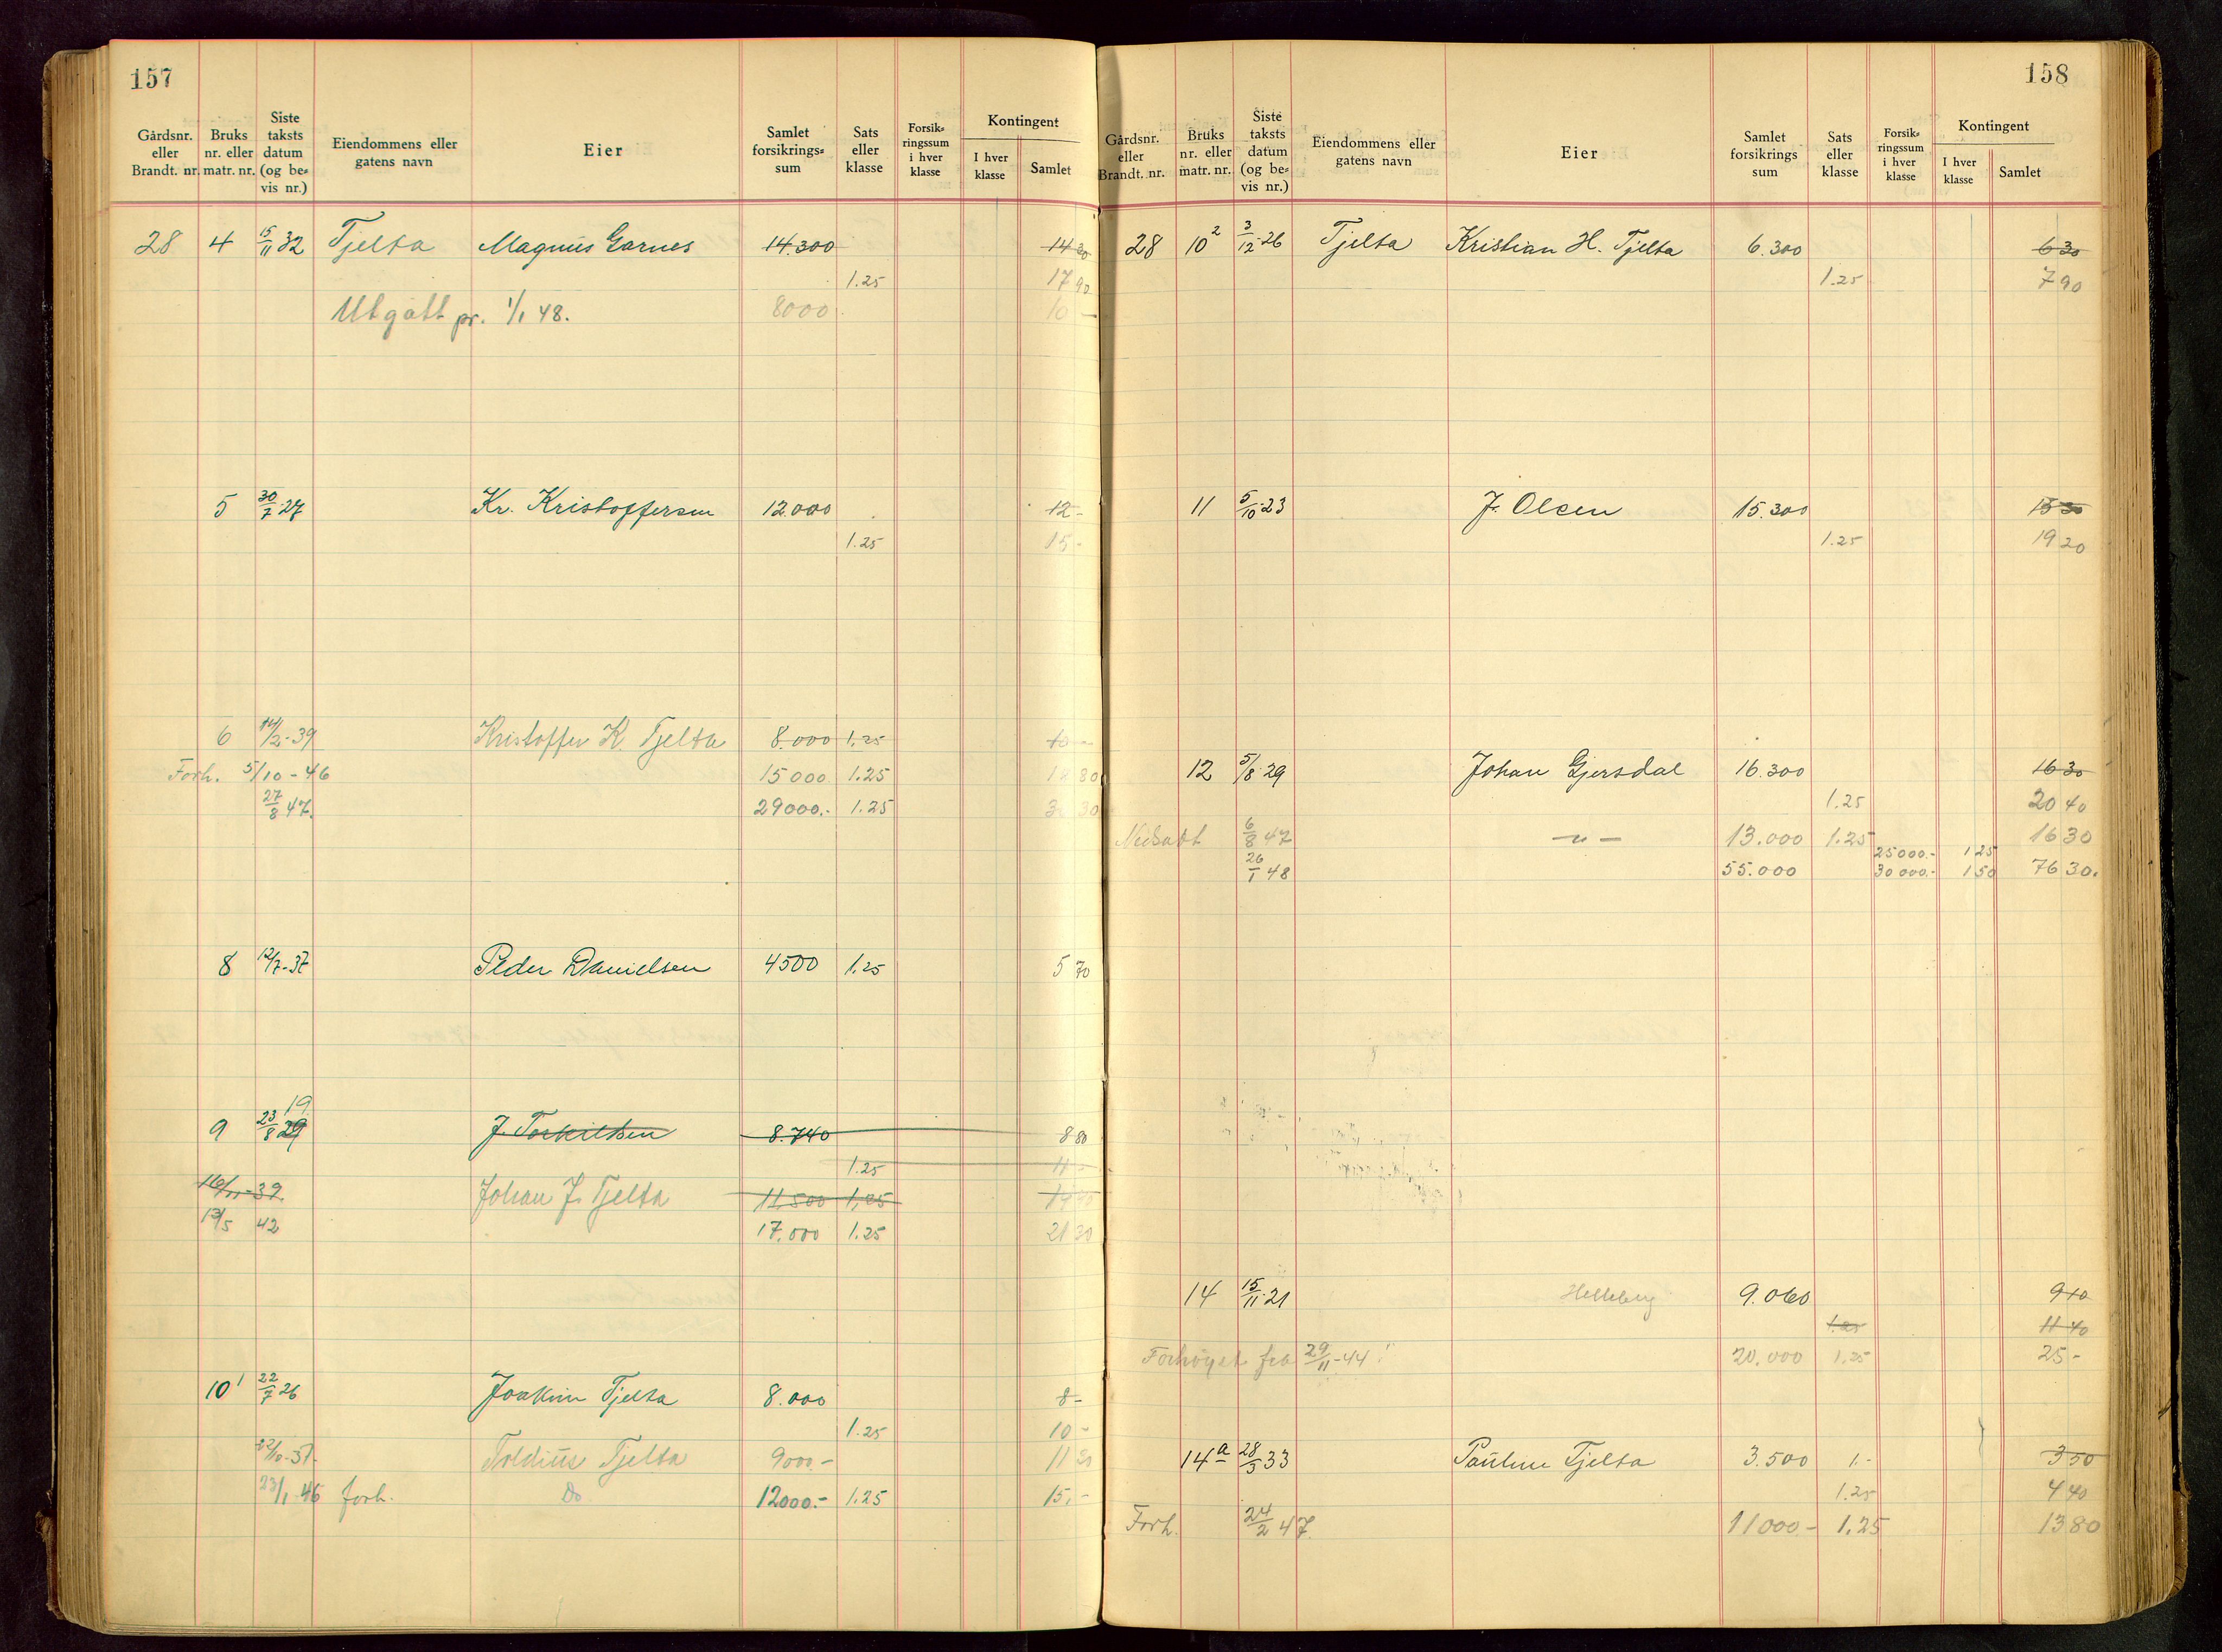 157
Gårdsnr. eller Brandt. nr. Bruks nr. eller matr. nr. Siste taksts datum (og be= vis nr.) Eiendommens eller gatens navn Eier Samlet forsikrings= sum Sats eller klasse Forsik= ringssum i hver klasse Kontingent I hver klasse Samlet
28 4 15/11 32 Tjelta Magnus Garnes 14.300 14 30
1.25 17 90
Utgått pr. 1/1 48. 8000 10 -
5 30/7 27 Kr. Kristoffersen 12.000 12 -
1.25 15 -
6 14/2-39 Kristoffer K. Tjelta 8.000 1,25 10 -
Forh. 5/10-46 15000 1.25 18 80
27/8 47. 29000.- 1.25 36 30
8 12/7-37 Peder Danielsen 4500 1.25 5 70
19
9 23/8 29 J. Torkildsen 8.740 8 80
1.25 11 -
16/11-39 Johan J. Tjelta 11,500 1,25
12/5 42 17.000 1.25 21 30
10¹ 22/7 26 Joakim Tjelta 8.000 8 -
1.25 10 -
22/10-37. Toldius Tjelta 9000.- 11 30
23/1-46 forh. Do. 12000.- 1.25 15,-
158
Gårdsnr. eller Brandt. nr. Bruks nr. eller matr. nr. Siste taksts datum (og be= vis nr.) Eiendommens eller gatens navn Eier Samlet forsikrings sum Sats eller klasse Forsik= ringssum i hver klasse Kontingent I hver klasse Samlet
28 10² 3/12-26 Tjelta Kristian H. Tjelta 6.300 6 30
1.25 7 90
11 5/10-23 J. Olsen 15.300 15 30
1.25 19 20
12 5/8-29 Johan Gjersdal 16.300 16 30
1.25 20 40
Nedsatt 6/8 47 -"- 13.000 1.25 16 30
25000.- 1 25
26/1 48 55.000 30000.- 1 50 76 30.
14 15/11-21 Helleberg 9.060 9 10
1.25 11 40
Forhøyet fra 29/11-44! 20.000 1.25 25 -
14a 28/3 33 Pauline Tjelta 3.500 1.- 3 50
1.25 4 40
Forh. 24/2 47. 11000- 1.25 13 80